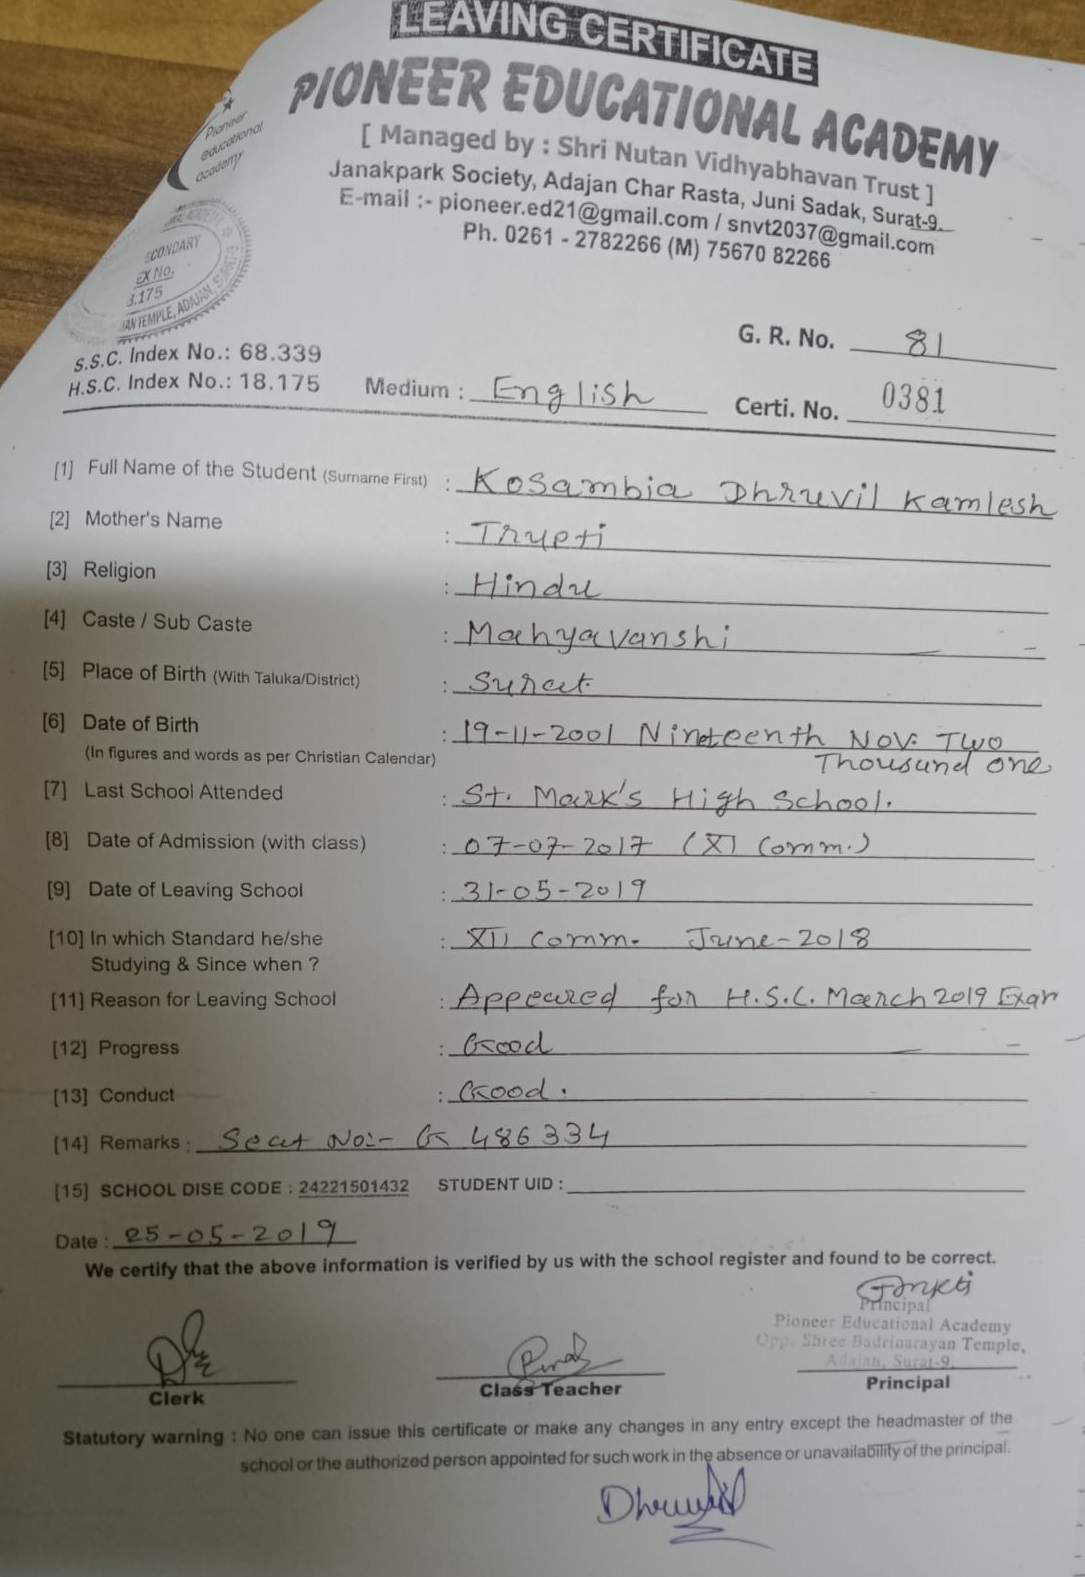 LEAVING CERTIFICATE
PIONEER EDUCATIONAL ACADEMY
[ Managed by : Shri Nutan Vidhyabhavan Trust ]
Janakpark Society, Adajan Char Rasta, Juni Sadak, Surat-9.
E-mail :- pioneer.ed21@gmail.com / snvt2037@gmail.com
Ph. 0261 - 2782266 (M) 75670 82266
Pioneer
educational
academy
CONDARY
EX No.
175
TEMPLE, ADAJAN,
G. R. No. 81
S.S.C. Index No.: 68.339
H.S.C. Index No.: 18.175 Medium : English Certi. No. 0381
[1] Full Name of the Student (Surname First) : Kosambia Dhruvil Kamlesh
[2] Mother's Name : Trupti
[3] Religion : Hindu
[4] Caste / Sub Caste : Mahyavanshi
[5] Place of Birth (With Taluka/District) : Surat.
[6] Date of Birth : 19-11-2001 Nineteenth Nov. Two
(In figures and words as per Christian Calendar) Thousand one
[7] Last School Attended : St. Mark's High School.
[8] Date of Admission (with class) : 07-07-2017 (XI Comm.)
[9] Date of Leaving School : 31-05-2019
[10] In which Standard he/she : XII Comm. June-2018
Studying & Since when ?
[11] Reason for Leaving School : Appeared for H.S.C. March 2019 Exam
[12] Progress : Good
[13] Conduct : Good.
[14] Remarks : Seat No:- G 486334
[15] SCHOOL DISE CODE : 24221501432 STUDENT UID :
Date : 25-05-2019
We certify that the above information is verified by us with the school register and found to be correct.
Principal
Pioneer Educational Academy
Opp. Shree Badrinarayan Temple,
Adajan, Surat-9.
Clerk Class Teacher Principal
Statutory warning : No one can issue this certificate or make any changes in any entry except the headmaster of the
school or the authorized person appointed for such work in the absence or unavailability of the principal.